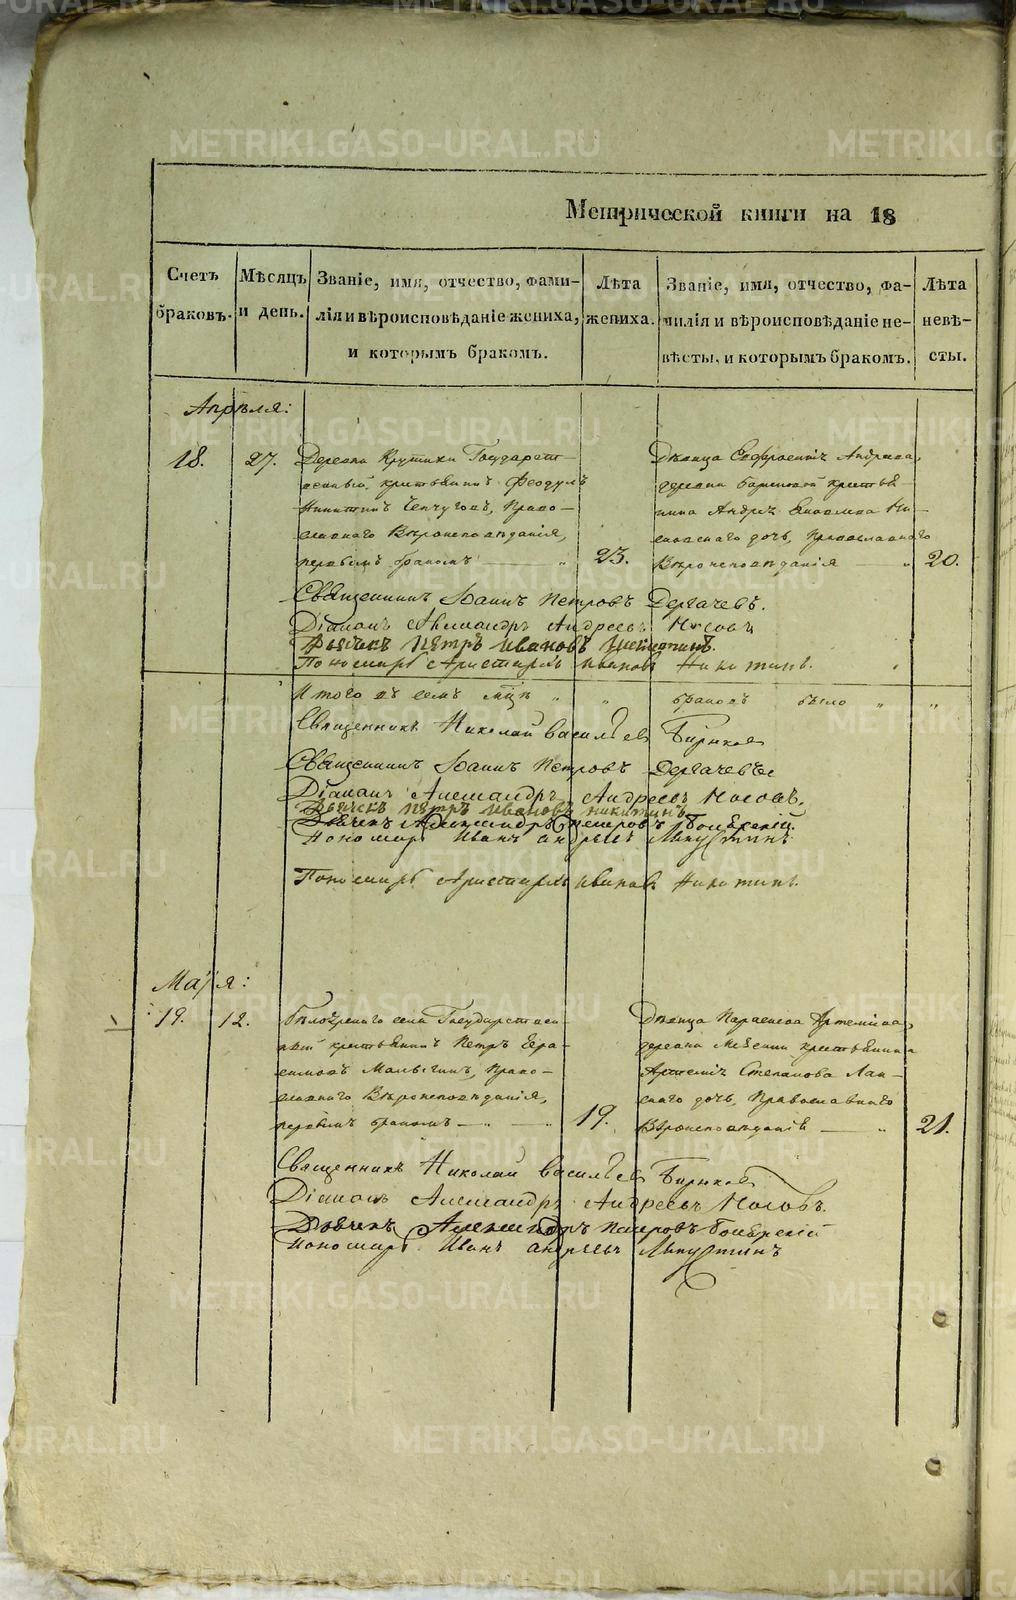 Метрической книги на 18
Счетъ браковъ.
Мѣсяцъ и день.
Званіе, имя, отчество, фами-
лія и вѣроисповѣданіе жениха,
и которымъ бракомъ.
Лѣта жениха.
Званіе, имя, отчество, фа-
милія и вѣроисповѣданіе не-
вѣсты, и которымъ бракомъ.
Лѣта невѣ-
сты.
Апрѣля:
18.
27.
Деревни Крутики Государст-
венный крестьянинъ Феодулъ
Никитинъ Чепчуговъ, Право-
славнаго Вѣроисповѣданія,
первымъ бракомъ
23.
Дѣвица Евфросинія Андреева,
деревни крестья-
нина Андрея Яковлева
дочь, Православнаго
Вѣроисповѣданія
20.
Священникъ Іоаннъ Петровъ Дергачевъ.
Діаконъ Александръ Андреевъ Носовъ
Дьячекъ Петръ Ивановъ Никитинъ.
Пономарь Аристархъ Ивановъ Никитинъ.
Итого въ семъ мцѣ браковъ было
Священникъ Николай Васильевъ Бирюковъ
Священникъ Іоаннъ Петровъ Дергачевъ
Діаконъ Александръ Андреевъ Носовъ.
Дьячекъ Петръ Ивановъ Никитинъ
Дьячекъ Александръ Петровъ
Пономарь Иванъ Андреевъ
Пономарь Аристархъ Ивановъ Никитинъ.
Маія:
19.
12.
Бѣлоярскаго села Государствен-
ный крестьянинъ Петръ Гера-
симовъ Малыгинъ, Право-
славнаго Вѣроисповѣданія,
первымъ бракомъ
19.
Дѣвица Параскева Артеміева,
деревни крестьянина
Артемія Степанова
дочь, Православнаго
Вѣроисповѣданія
21.
Священникъ Николай Васильевъ Бирюковъ
Діаконъ Александръ Андреевъ Носовъ.
Дьячекъ Александръ Петровъ
Пономарь Иванъ Андреевъ
METRIKI.GASO-URAL.RU